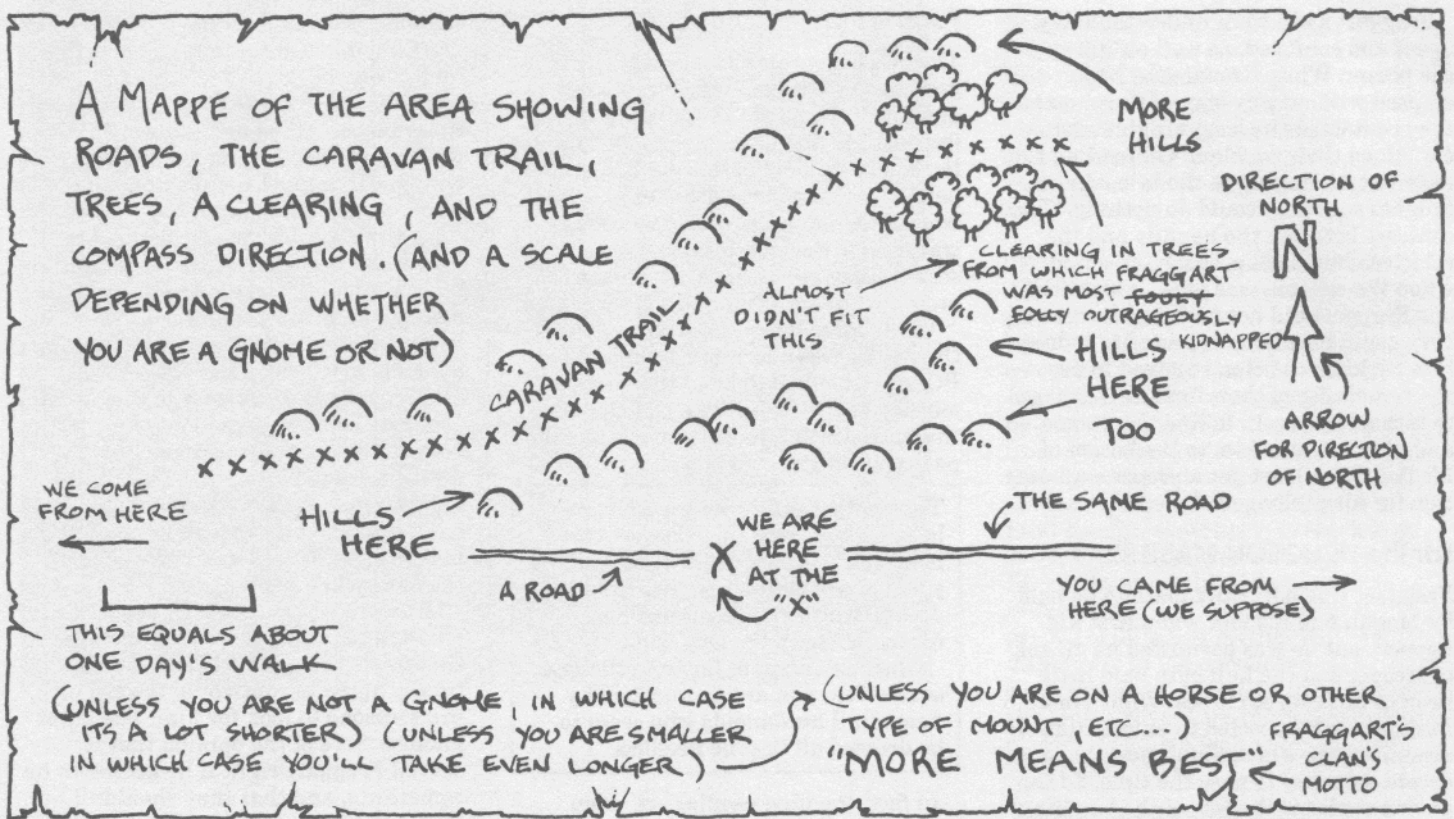 A MAPPE OF THE AREA SHOWING
ROADS, THE CARAVAN TRAIL,
TREES, A CLEARING, AND THE
COMPASS DIRECTION. (AND A SCALE
DEPENDING ON WHETHER
YOU ARE A GNOME OR NOT)
MORE
HILLS
DIRECTION OF
NORTH
N
CLEARING IN TREES
FROM WHICH FRAGGART
WAS MOST FOULY
FOLLY OUTRAGEOUSLY
KIDNAPPED
ALMOST
DIDN'T FIT
THIS
CARAVAN TRAIL
HILLS
HERE
TOO
ARROW
FOR DIRECTION
OF NORTH
WE COME
FROM HERE
HILLS
HERE
A ROAD
X
WE ARE
HERE
AT THE
"X"
THE SAME ROAD
YOU CAME FROM
HERE (WE SUPPOSE)
THIS EQUALS ABOUT
ONE DAY'S WALK
(UNLESS YOU ARE NOT A GNOME, IN WHICH CASE
ITS A LOT SHORTER) (UNLESS YOU ARE SMALLER
IN WHICH CASE YOU'LL TAKE EVEN LONGER)
(UNLESS YOU ARE ON A HORSE OR OTHER
TYPE OF MOUNT, ETC...)
"MORE MEANS BEST"
FRAGGART'S
CLAN'S
MOTTO